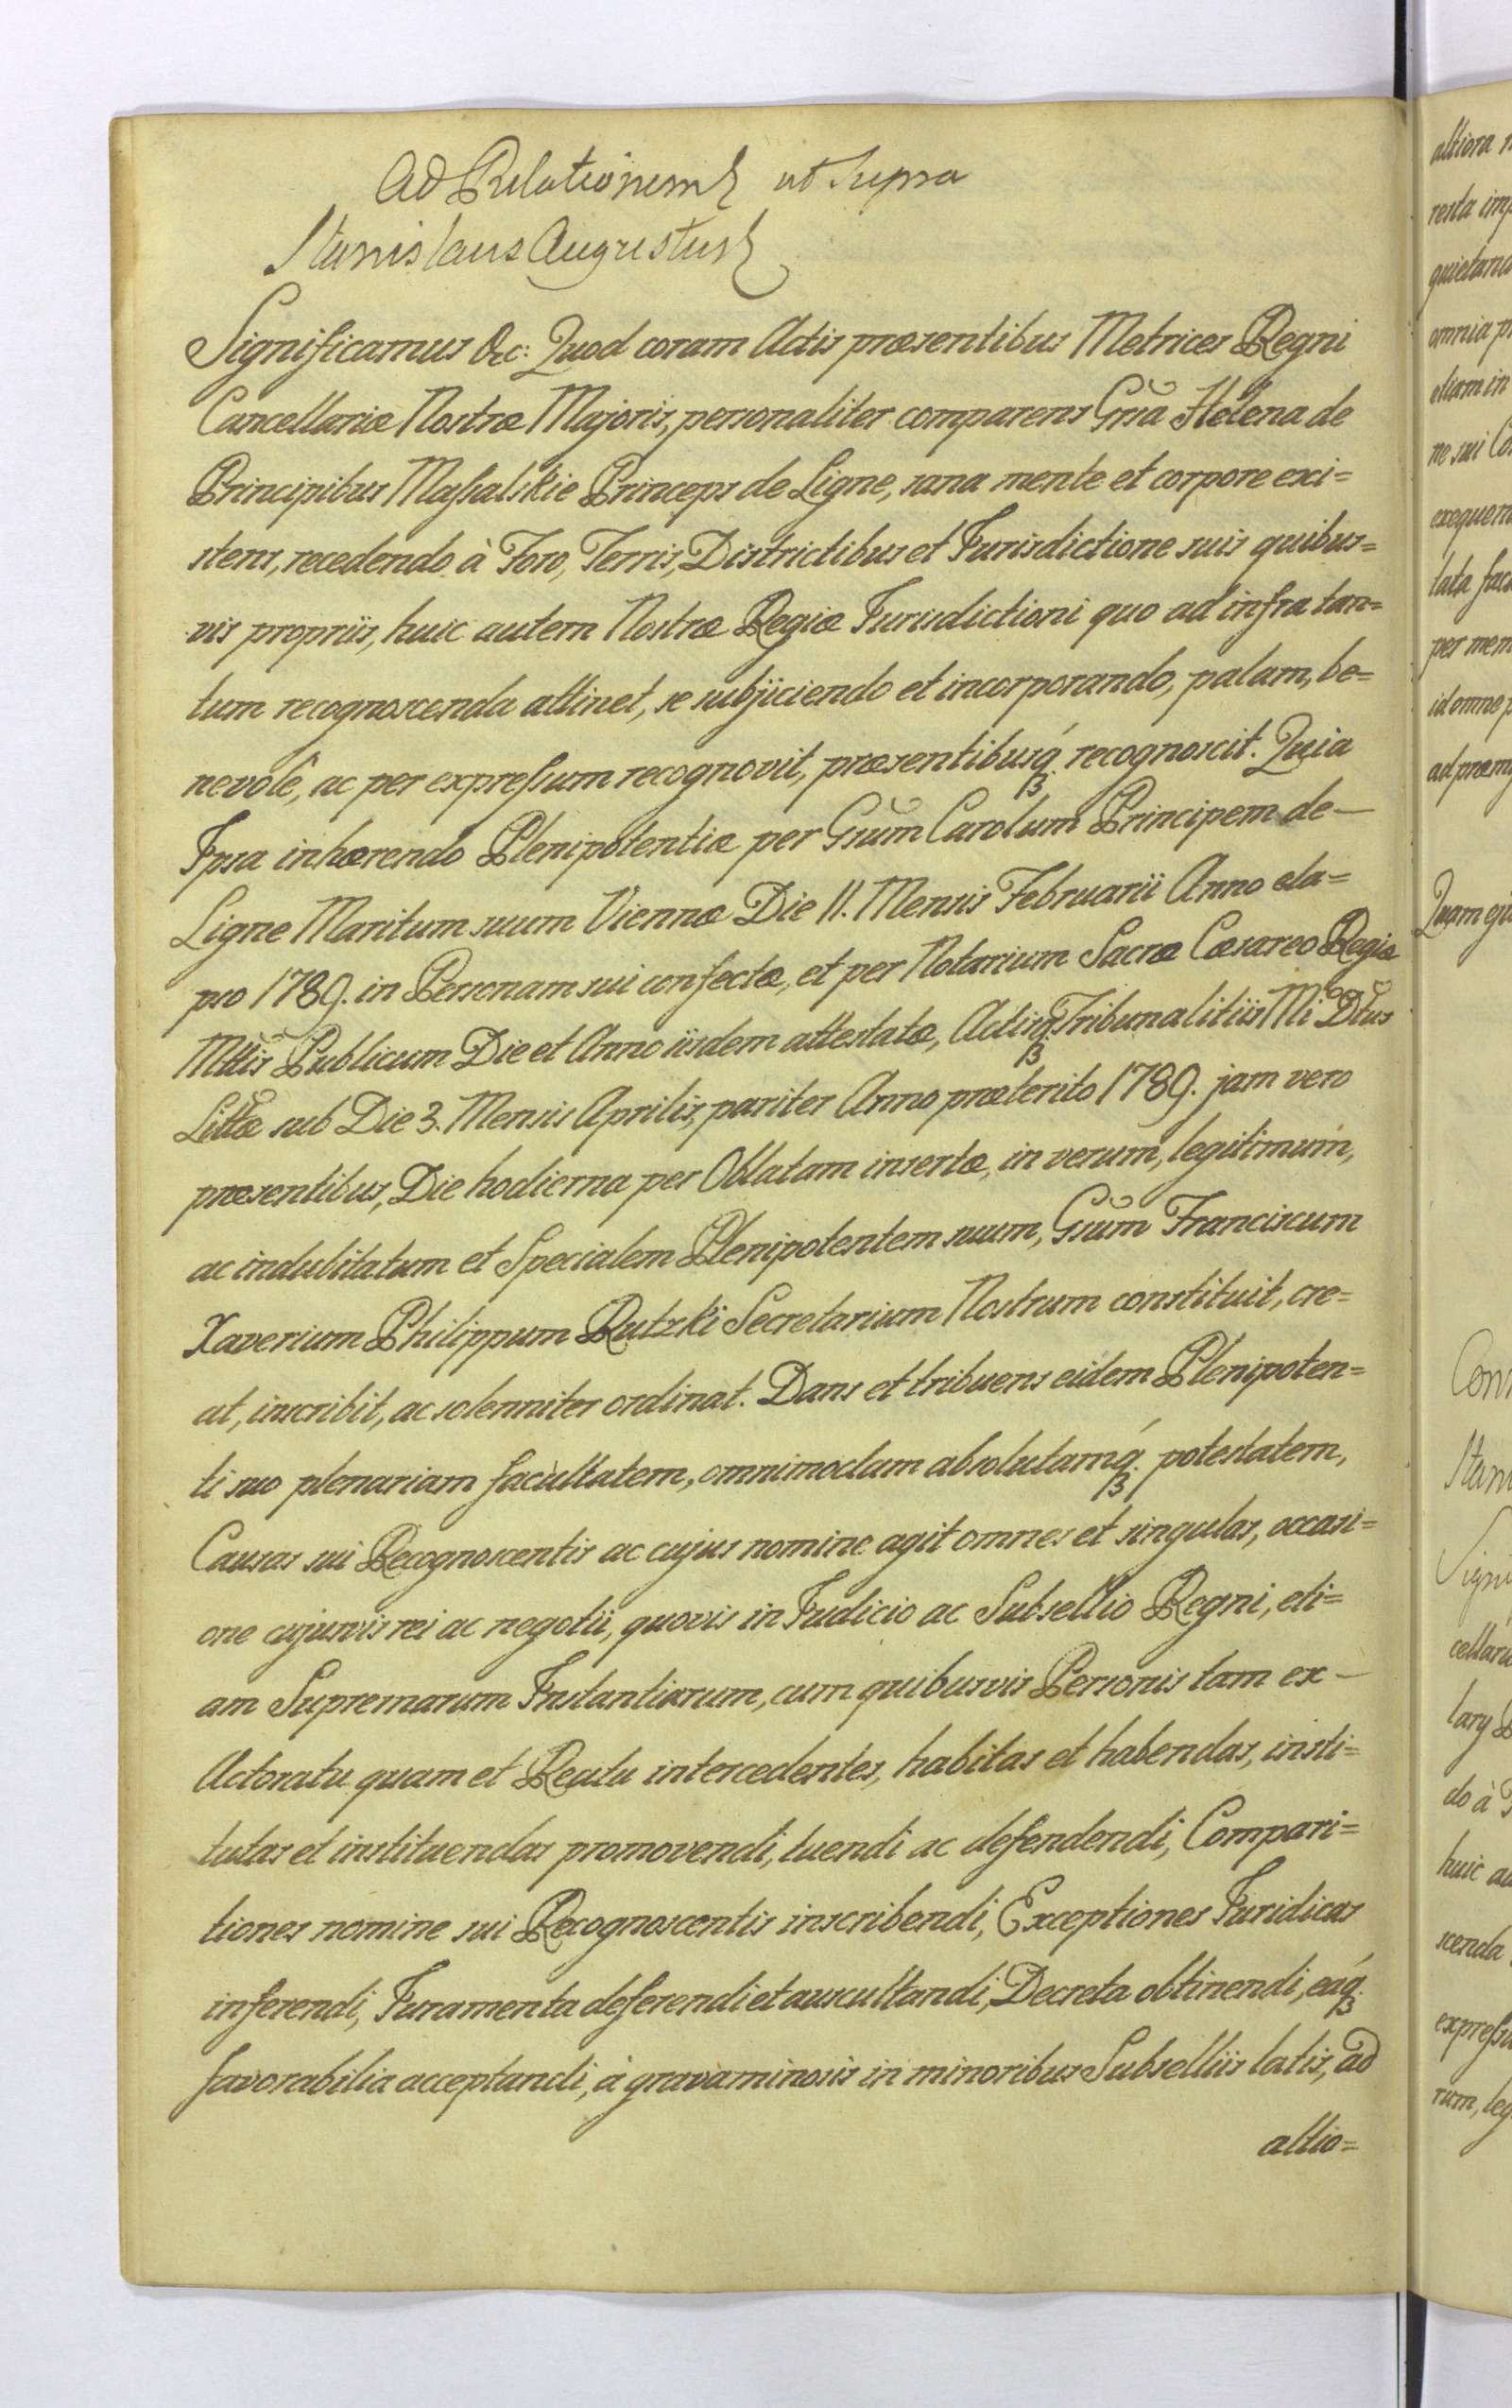 Ad Relationem ut Supra
Stanislaus Augustus
Significamus &c: Quod coram Actis præsentibus Metrices Regni
Cancellariæ Nostræ Majoris, personaliter comparens Gnsa Helena de
Principibus Massalskie Princeps de Ligne, sana mente et corpore exi=
stens, recedendo à Foro, Terris, Districtibus et Jurisdictione suis quibus=
vis propriis, huic autem Nostræ Regiæ Jurisdictioni quo ad infra tan=
tum recognoscenda attinet, se subjiciendo et incorporando, palam, be=
nevolê, ac per expressum recognovit, præsentibusq. recognoscit. Quia
Ipsa inhærendo Plenipotentiæ per Gsum Carolum Principem de —
Ligne Maritum suum Viennæ Die 11. Mensis Februarii Anno ela=
pso 1789. in Personam sui confectæ, et per Notarium Sacræ Cæsareo Regiæ
Mttis Publicum Die et Anno iisdem attestatæ, Actisq. Tribunalitiis Mi Dtus
Littæ sub Die 3. Mensis Aprilis, pariter Anno præterito 1789. jam vero
præsentibus, Die hodierna per Oblatam insertæ, in verum, legitimum,
ac indubitatum et Specialem Plenipotentem suum, Gsum Franciscum
Xaverium Philippum Rutzki Secretarium Nostrum constituit, cre=
at, inscribit, ac solenniter ordinat. Dans et tribuens eidem Plenipoten=
ti suo plenariam facultatem, omnimodam absolutamq. potestatem,
Causas sui Recognoscentis ac cujus nomine agit omnes et singulas, occasi=
one cujusvis rei ac negotii, quovis in Judicio ac Subsellio Regni, eti=
am Supremarum Instantiarum, cum quibusvis Personis tam ex —
Actoratu quam et Reatu intercedentes, habitas et habendas, insti=
tutas et instituendas promovendi, tuendi ac defendendi, Compari=
tiones nomine sui Recognoscentis inscribendi, Exceptiones Juridicas
inferendi, Juramenta deferendi et auscultandi, Decreta obtinendi, eaq.
favorabilia acceptandi, à gravaminosis in minoribus Subselliis latis, ad
altio=